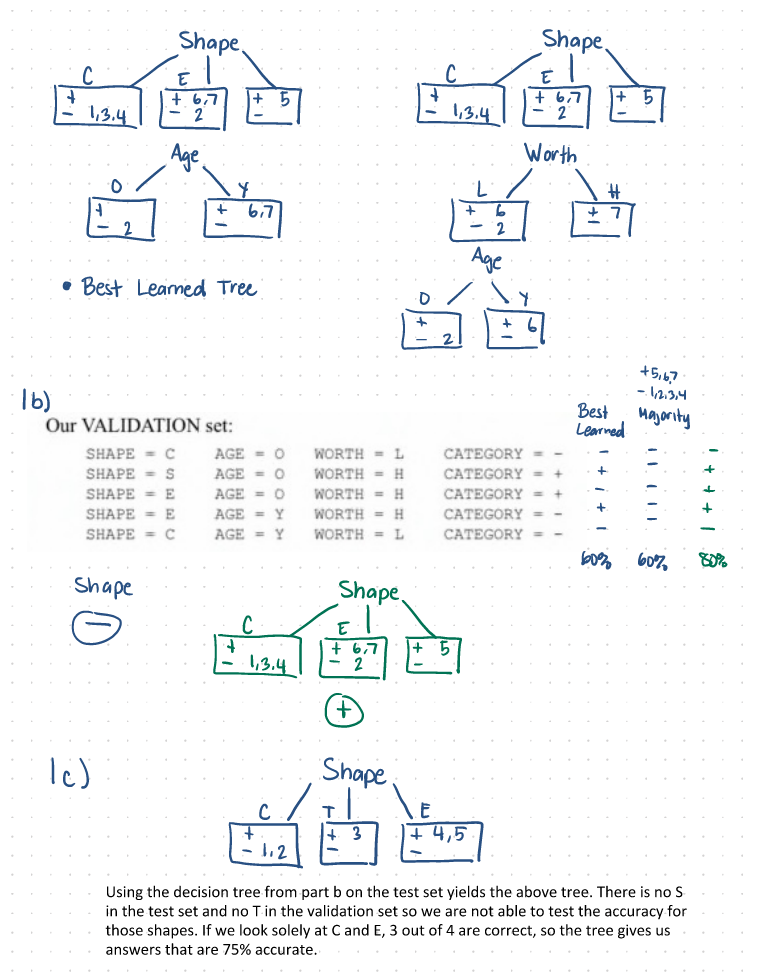 Shape
C E
+ + 6,7 + 5
- 1,3,4 - 2 -
Age
O Y
+ + 6,7
- 2 -
• Best Learned Tree
Shape
C E
+ + 6,7 + 5
- 1,3,4 - 2 -
Worth
L H
+ 6 + 7
- 2 -
Age
O Y
+ + 6
- 2 -
1b)
+5,6,7
- 1,2,3,4
Best Learned Majority
Our VALIDATION set:
SHAPE = C AGE = O WORTH = L CATEGORY = - - - -
SHAPE = S AGE = O WORTH = H CATEGORY = + + - +
SHAPE = E AGE = O WORTH = H CATEGORY = + - - +
SHAPE = E AGE = Y WORTH = H CATEGORY = - + - +
SHAPE = C AGE = Y WORTH = L CATEGORY = - - - -
60% 60% 80%
Shape
-
Shape
C E
+ + 6,7 + 5
- 1,3,4 - 2 -
+
1c)
Shape
C T E
+ + 3 + 4,5
- 1,2 - -
Using the decision tree from part b on the test set yields the above tree. There is no S
in the test set and no T in the validation set so we are not able to test the accuracy for
those shapes. If we look solely at C and E, 3 out of 4 are correct, so the tree gives us
answers that are 75% accurate.